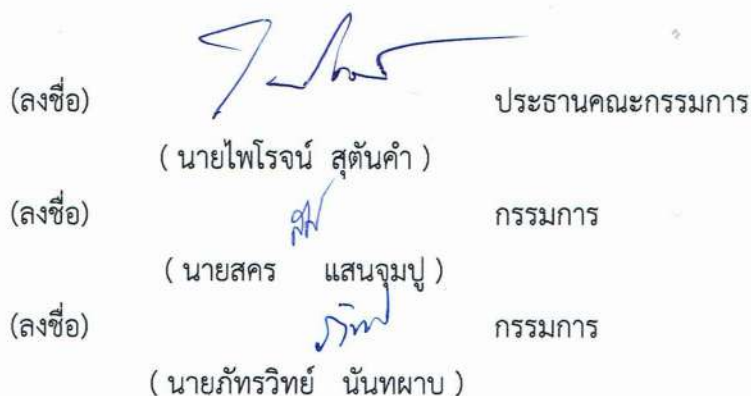 (ลงชื่อ) ประธานคณะกรรมการ
( นายไพโรจน์ สุตันคำ )
(ลงชื่อ) กรรมการ
( นายสคร แสนจุมปู )
(ลงชื่อ) กรรมการ
( นายภัทรวิทย์ นันทผาบ )